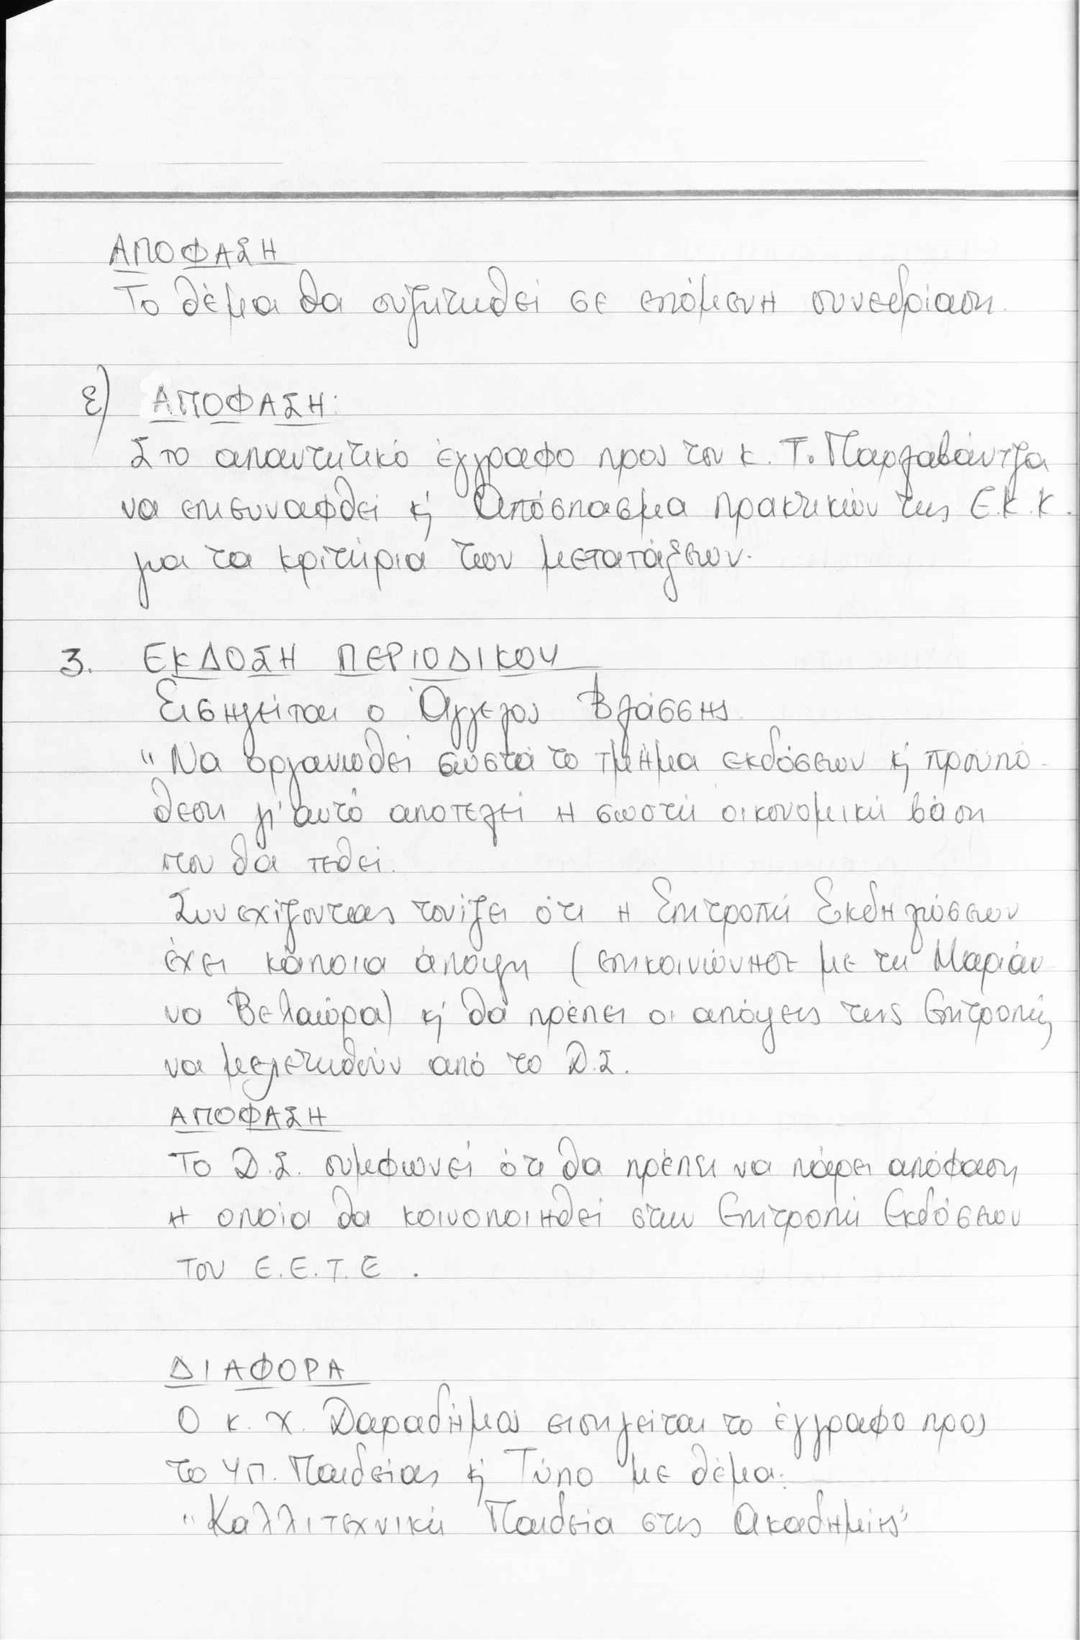 ΑΠΟΦΑΣΗ
Το θέμα θα συζητηθεί σε επόμενη συνεδρίαση.
ε) ΑΠΟΦΑΣΗ:
Στο απαντητικό έγγραφο προς τον κ. Τ. Παρλαβάντζα
να επισυναφθεί κ' Απόσπασμα πρακτικών της Ε.Κ.Κ.
για τα κριτήρια των μετατάξεων.
3. ΕΚΔΟΣΗ ΠΕΡΙΟΔΙΚΟΥ
Εισηγείται ο Άγγελος Βλάσσης
"Να οργανωθεί σωστά το τμήμα εκδόσεων κ' προυπό-
θεση γι' αυτό αποτελεί η σωστή οικονομική βάση
που θα τεθεί.
Συνεχίζοντας τονίζει ότι η Επιτροπή Εκδηλώσεων
έχει κάποια άποψη (επικοινώνησε με τη Μαριάν
να Βελαώρα) κ' θα πρέπει οι απόψεις της Επιτροπής
να μελετηθούν από το Δ.Σ.
ΑΠΟΦΑΣΗ
Το Δ.Σ. συμφωνεί ότι θα πρέπει να πάρει απόφαση
η οποία θα κοινοποιηθεί στην Επιτροπή Εκδόσεων
του Ε.Ε.Τ.Ε.
ΔΙΑΦΟΡΑ
Ο κ. Χ. Δαραδήμος εισηγείται το έγγραφο προς
το Υπ. Παιδείας κ' Τύπο με θέμα:
"Καλλιτεχνική Παιδεία στις Ακαδημίες"